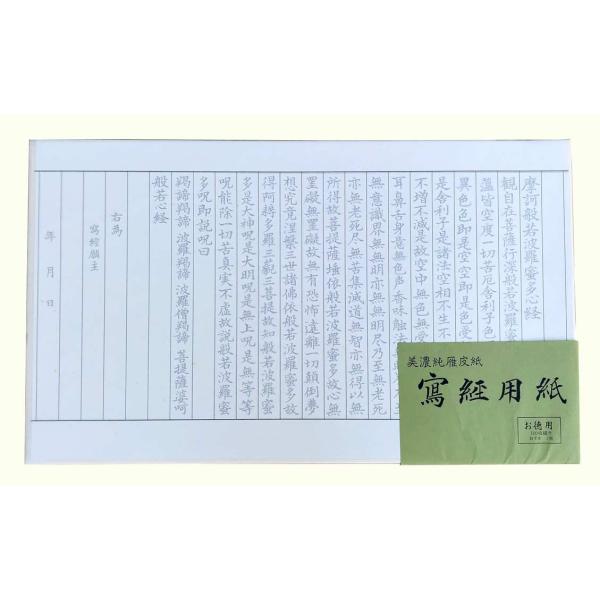 摩訶般若波羅蜜多心経
観自在菩薩行深般若波羅蜜
蘊皆空度一切苦厄舎利子色
異色色即是空空即是色受
是舎利子是諸法空相不生不
不増不減是故空中無色無受
耳鼻舌身意無色声香味触法
無意識界無無明亦無無明尽乃至無老死
亦無老死尽無苦集滅道無智亦無得以無
所得故菩提薩埵依般若波羅蜜多故心無
罣礙無罣礙故無有恐怖遠離一切顛倒夢
想究竟涅槃三世諸佛依般若波羅蜜多故
得阿耨多羅三藐三菩提故知般若波羅蜜
多是大神呪是大明呪是無上呪是無等等
呪能除一切苦真実不虚故説般若波羅蜜
多呪即説呪曰
羯諦羯諦 波羅羯諦 波羅僧羯諦 菩提薩婆呵
般若心経
右為
寫経願主
年 月 日
美濃純雁皮紙
寫経用紙
お徳用